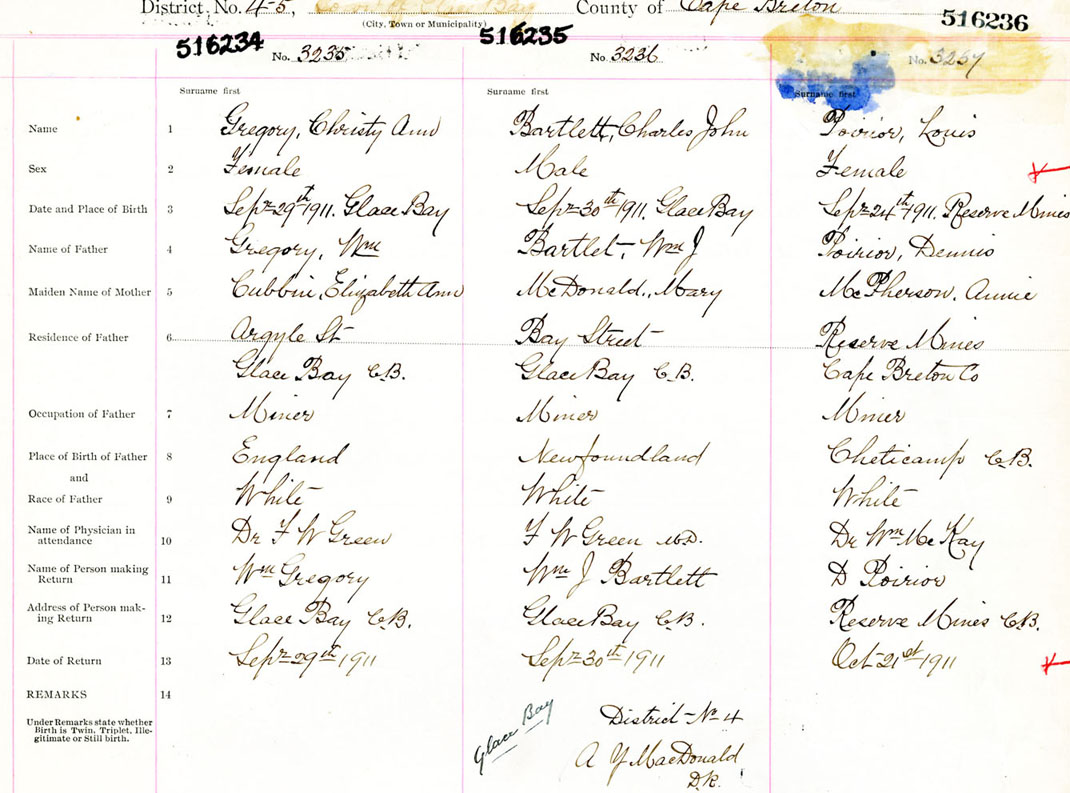 District No. 4-5, County of Cape Breton
(City, Town or Municipality)
516234 516235 516236
No. 3235 No. 3236 No. 3237
Surname first Surname first Surname first
Name 1 Gregory, Christy Ann Bartlett, Charles John Poirior, Louis
Sex 2 Female Male Female
Date and Place of Birth 3 Sept 29th 1911. Glace Bay Sept 30th 1911, Glace Bay Sept 24th 1911. Reserve Mines
Name of Father 4 Gregory, Wm Bartlet, Wm J Poirior, Dennis
Maiden Name of Mother 5 Cubbin, Elizabeth Ann McDonald, Mary McPherson, Annie
Residence of Father 6 Argyle St Bay Street Reserve Mines
Glace Bay C.B. Glace Bay C.B. Cape Breton Co
Occupation of Father 7 Miner Miner Miner
Place of Birth of Father 8 England Newfoundland Cheticamp C.B.
and
Race of Father 9 White White White
Name of Physician in
attendance 10 Dr F W Green F W Green M.D. Dr Wm McKay
Name of Person making
Return 11 Wm Gregory Wm J Bartlett D Poirior
Address of Person mak-
ing Return 12 Glace Bay C.B. Glace Bay C.B. Reserve Mines C.B.
Date of Return 13 Sept 29th 1911 Sept 30th 1911 Oct 21st 1911
REMARKS 14
Under Remarks state whether
Birth is Twin, Triplet, Ille-
gitimate or Still birth.
Glace Bay
District No 4
A Y MacDonald
D.R.